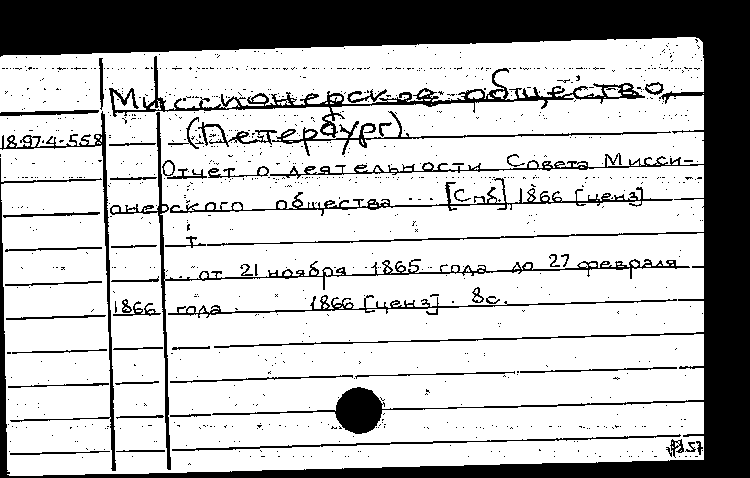 Миссионерское общество,
(Петербург).
18.97.4-558
Отчет о деятельности Совета Мисси-
онерского общества ... [Спб.], 1866 [ценз]
т.
... от 21 ноября 1865 года до 27 февраля
1866 года. 1866 [ценз]. 8с.